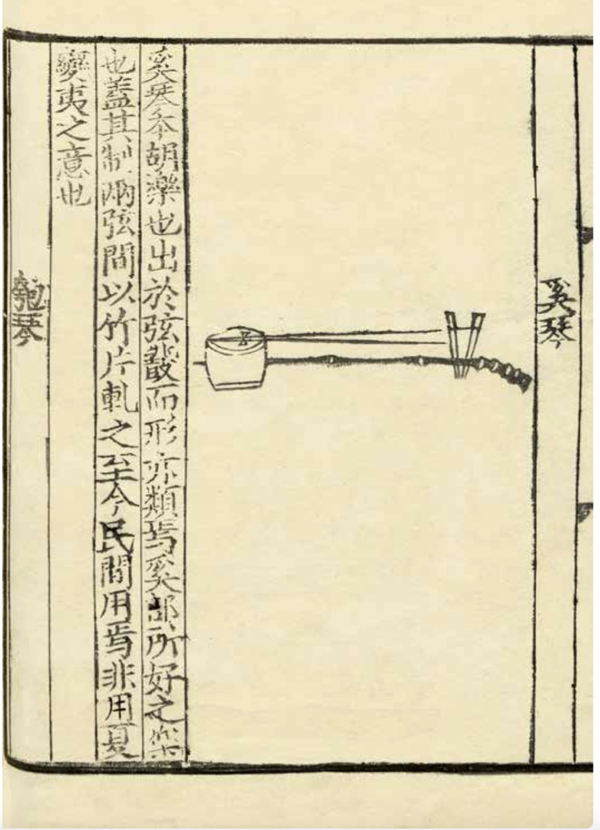 奚琴
奚琴本胡樂也出於弦鼗而形亦類焉奚部所好之樂
也蓋其制兩弦間以竹片軋之至今民間用焉非用夏
變夷之意也
匏琴